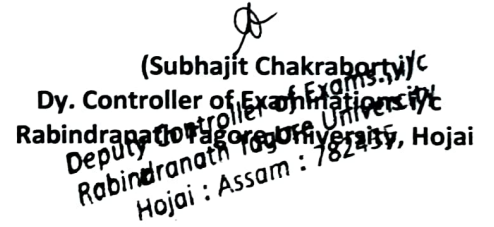 (Subhajit Chakraborty)
Dy. Controller of Examinations i/c
Rabindranath Tagore University, Hojai
Deputy Controller of Exams., i/c
Rabindranath Tagore University
Hojai : Assam : 782435